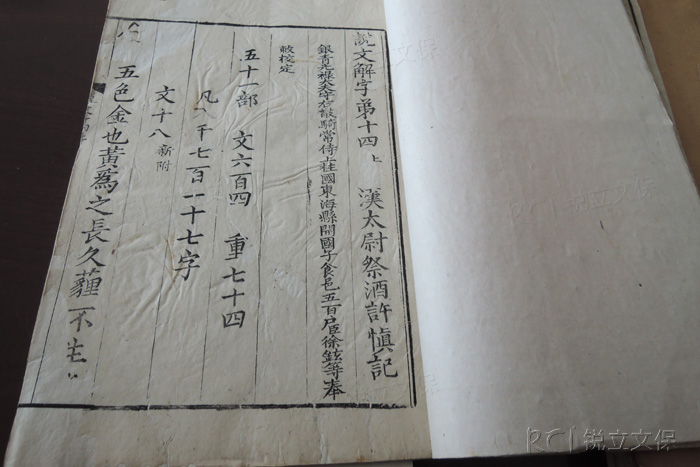 說文解字弟十四 上 漢太尉祭酒許慎記
銀青光祿大夫守右散騎常侍上柱國東海縣開國子食邑五百戶臣徐鉉等奉
敕校定
五十一部 文六百四 重七十四
凡八千七百一十七字
文十八 新附
五色金也黃爲之長久薶不生
RCI 锐立文保